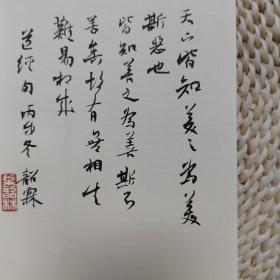 天下皆知美之为美
斯恶也
皆知善之為善斯不
善矣故有無相生
難易相成
道經句 丙申冬 韶霖